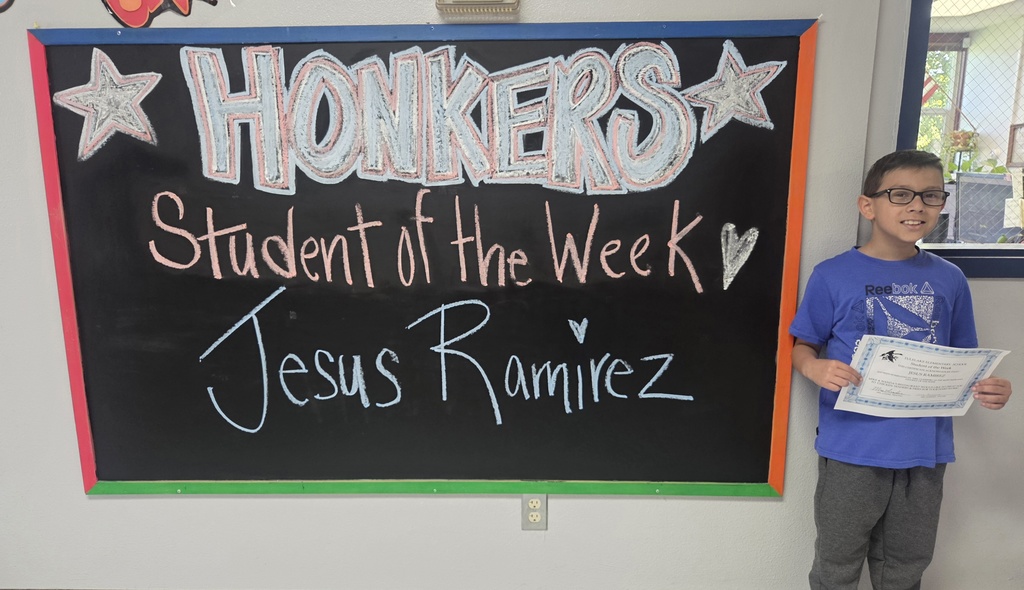 HONKERS
Student of the Week
Jesus Ramirez
Reebok
Student of the Week
JESUS RAMIREZ